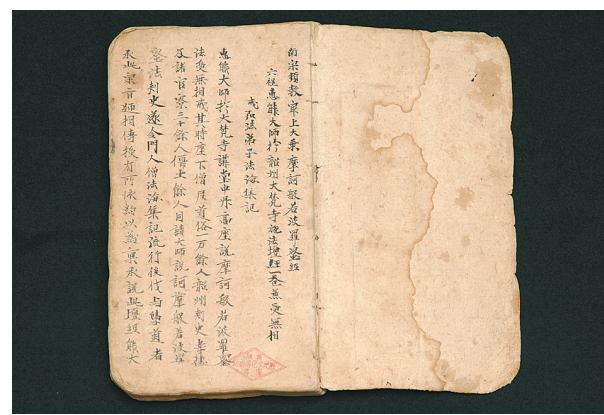 南宗頓教最上大乗摩訶般若波羅蜜経
六祖惠能大師扵韶州大梵寺施法壇経一巻兼受無相
戒弘法弟子法海集記
惠能大師扵大梵寺講堂中昇高座説摩訶般若波羅蜜
法受無相戒其時座下僧尼道俗一万餘人韶州刺史韋據
及諸官寮三十餘人儒士餘人同請大師説訶摩般若波羅
蜜法刺史遂令門人僧法海集記流行後代与學道者
承此宗旨遞相傳授有所依約以為稟承説此壇経能大